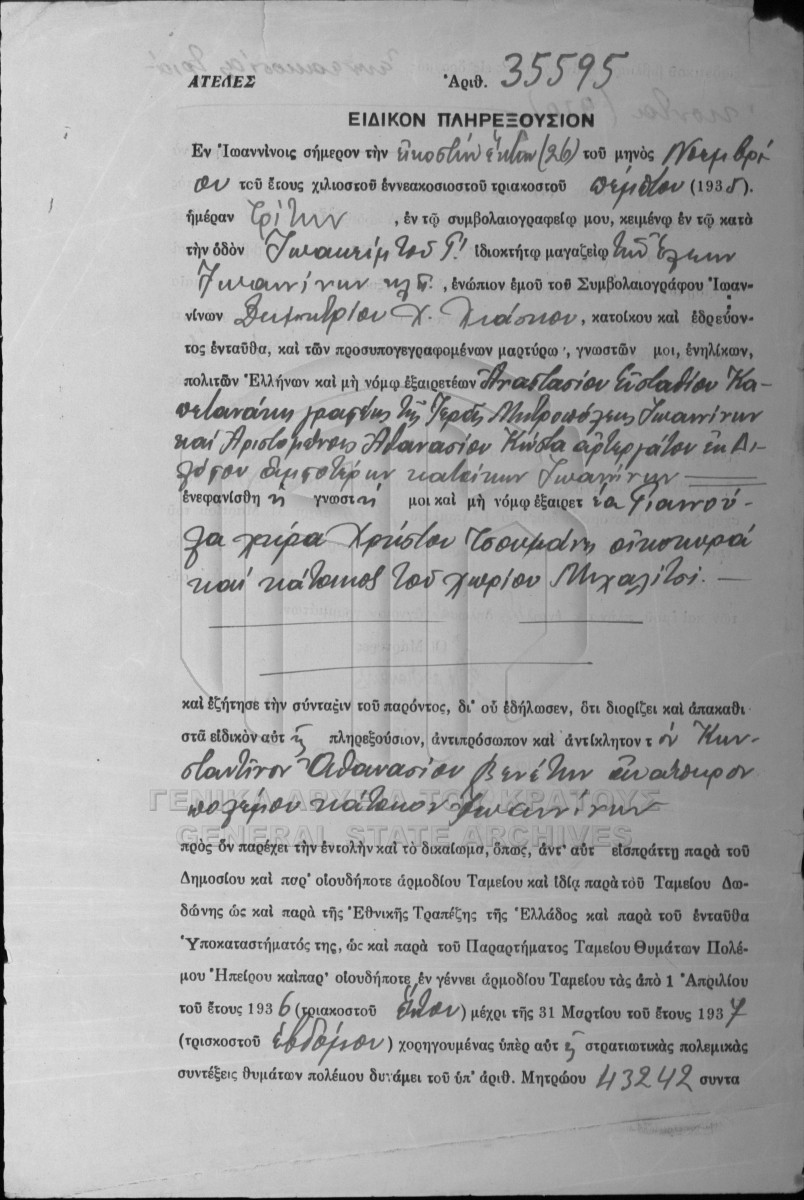 ΑΤΕΛΕΣ Ἀριθ. 35595
ΕΙΔΙΚΟΝ ΠΛΗΡΕΞΟΥΣΙΟΝ
Ἐν Ἰωαννίνοις σήμερον τὴν εἰκοστὴν ἕκτην (26) τοῦ μηνὸς Νοεμβρί-
ου τοῦ ἔτους χιλιοστοῦ ἐννεακοσιοστοῦ τριακοστοῦ πέμπτου (1935).
ἡμέραν Τρίτην , ἐν τῷ συμβολαιογραφείῳ μου, κειμένῳ ἐν τῷ κατὰ
τὴν ὁδὸν Ἰωακεὶμ τοῦ Γ! ἰδιοκτήτῳ μαγαζείῳ τῆς Ἐλεων
Ἰωαννίνων κλπ. , ἐνώπιον ἐμοῦ τοῦ Συμβολαιογράφου Ἰωαν-
νίνων Δημητρίου Χ. Χιάσκου, κατοίκου καὶ ἑδρεύον-
τος ἐνταῦθα, καὶ τῶν προσυπογεγραφομένων μαρτύρων, γνωστῶν μοι, ἐνηλίκων,
πολιτῶν Ἑλλήνων καὶ μὴ νόμῳ ἐξαιρετέων Ἀναστασίου Εὐσταθίου Κα-
πετανάκη γραφέως τῆς Ἱερᾶς Μητροπόλεως Ἰωαννίνων
καὶ Ἀριστομένους Ἀθανασίου Κώστα ἀρτεργάτου ἐκ Δι-
λόφου ἀμφοτέρων κατοίκων Ἰωαννίνων
ἐνεφανίσθη ἡ γνωστή μοι καὶ μὴ νόμῳ ἐξαιρετέα Γιαννού-
λα χήρα Χρήστου Τσουμάνη οἰκοκυρὰ
καὶ κάτοικος τοῦ χωρίου Μιχαλίτσι.
καὶ ἐζήτησε τὴν σύνταξιν τοῦ παρόντος, δι' οὗ ἐδήλωσεν, ὅτι διορίζει καὶ ἀποκαθι
στᾶ εἰδικὸν αὐτῆς πληρεξούσιον, ἀντιπρόσωπον καὶ ἀντίκλητον τὸν Κων-
σταντῖνον Ἀθανασίου Βενέτην ἀνάπηρον
πολέμου κάτοικον Ἰωαννίνων
ΓΕΝΙΚΑ ΑΡΧΕΙΑ ΤΟΥ ΚΡΑΤΟΥΣ
GENERAL STATE ARCHIVES
πρὸς ὃν παρέχει τὴν ἐντολὴν καὶ τὸ δικαίωμα, ὅπως, ἀντ' αὐτ εἰσπράττῃ παρὰ τοῦ
Δημοσίου καὶ παρ' οἱουδήποτε ἁρμοδίου Ταμείου καὶ ἰδίᾳ παρὰ τοῦ Ταμείου Δω-
δώνης ὡς καὶ παρὰ τῆς Ἐθνικῆς Τραπέζης τῆς Ἑλλάδος καὶ παρὰ τοῦ ἐνταῦθα
Ὑποκαταστήματός της, ὡς καὶ παρὰ τοῦ Παραρτήματος Ταμείου Θυμάτων Πολέ-
μου Ἠπείρου καὶ παρ' οἱουδήποτε ἐν γέννει ἁρμοδίου Ταμείου τὰς ἀπὸ 1 Ἀπριλίου
τοῦ ἔτους 1936 (τριακοστοῦ ἕκτου) μέχρι τῆς 31 Μαρτίου τοῦ ἔτους 1937
(τρισκοστοῦ ἑβδόμου) χορηγουμένας ὑπὲρ αὐτῆς στρατιωτικὰς πολεμικὰς
συντέξεις θυμάτων πολέμου δυνάμει τοῦ ὑπ' ἀριθ. Μητρώου 43242 συντα